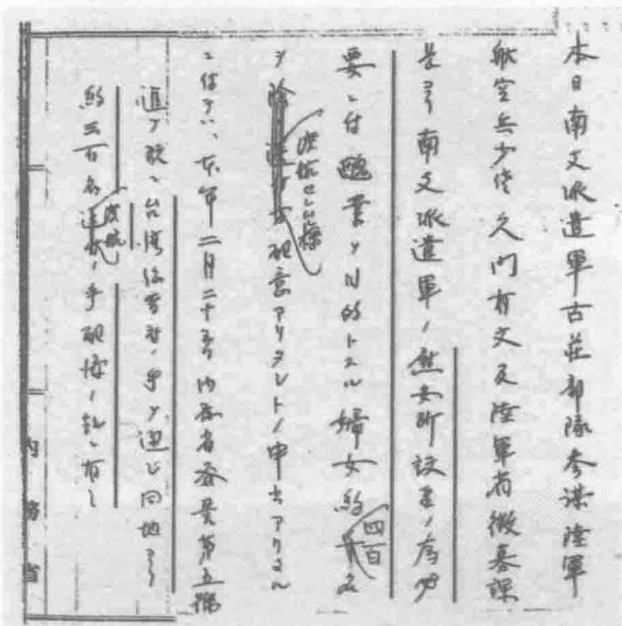 本日南支派遣軍古荘部隊参謀陸軍
航空兵少佐久門有文及陸軍省徴募課
長ヨリ南支派遣軍ノ慰安所設置ノ為必
要ニ付醜業ヲ目的トスル婦女約四百名
ヲ渡航セシムル様配意アリタシトノ申出アリタル
ニ付テハ、本年二月二十三日内務省発警第五號
追テ既ニ台湾総督府ノ手ヲ通ジ同地ヨリ
約三百名渡航ノ手配済ノ趣ニ有之
内務省